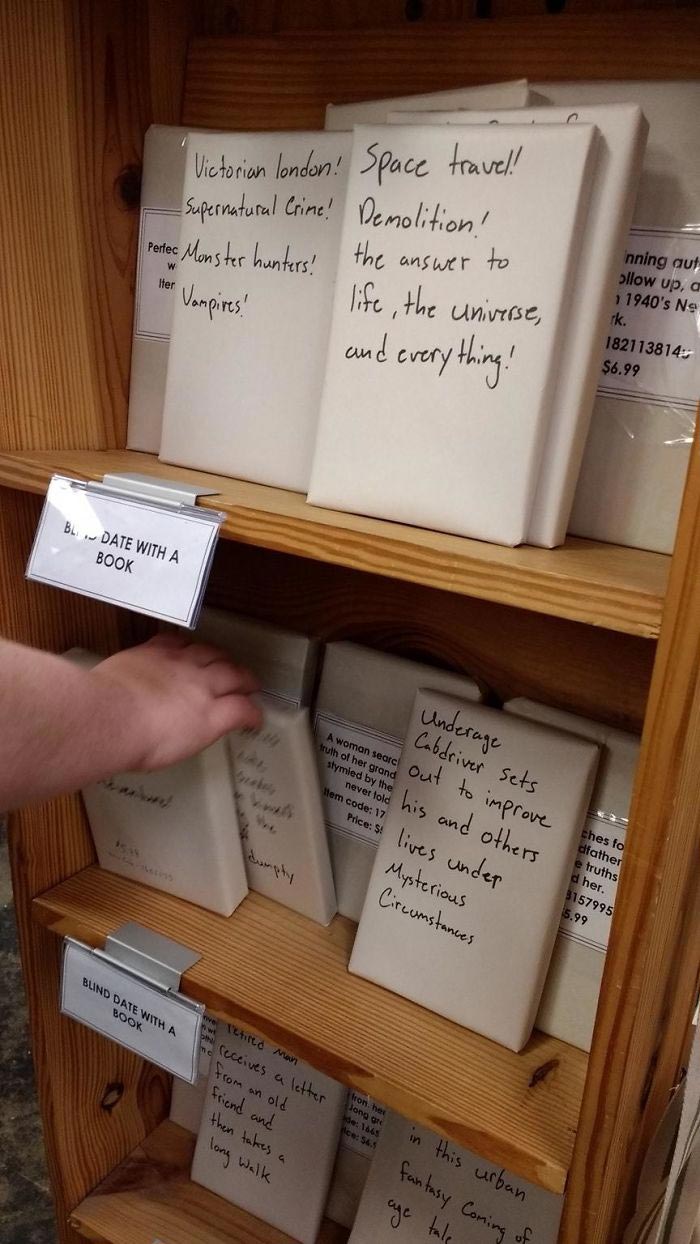 Victorian london!
Supernatural Crime!
Monster hunters!
Vampires!
Space travel!
Demolition!
the answer to
life, the universe,
and everything!
Perfec
w
Iter
nning aut
ollow up, a
1940's Ne
rk.
$6.99
DATE WITH A
BOOK
dumpty
A woman searc
truth of her grand
stymied by the
never told
Item code: 17
Price: $
Underage
Cabdriver sets
out to improve
his and others
lives under
Mysterious
Circumstances
ches fo
dfather
e truths
d her.
8157995
5.99
BLIND DATE WITH A
BOOK
retired man
receives a letter
from an old
friend and
then takes a
long walk
in this urban
fantasy Coming of
age tale